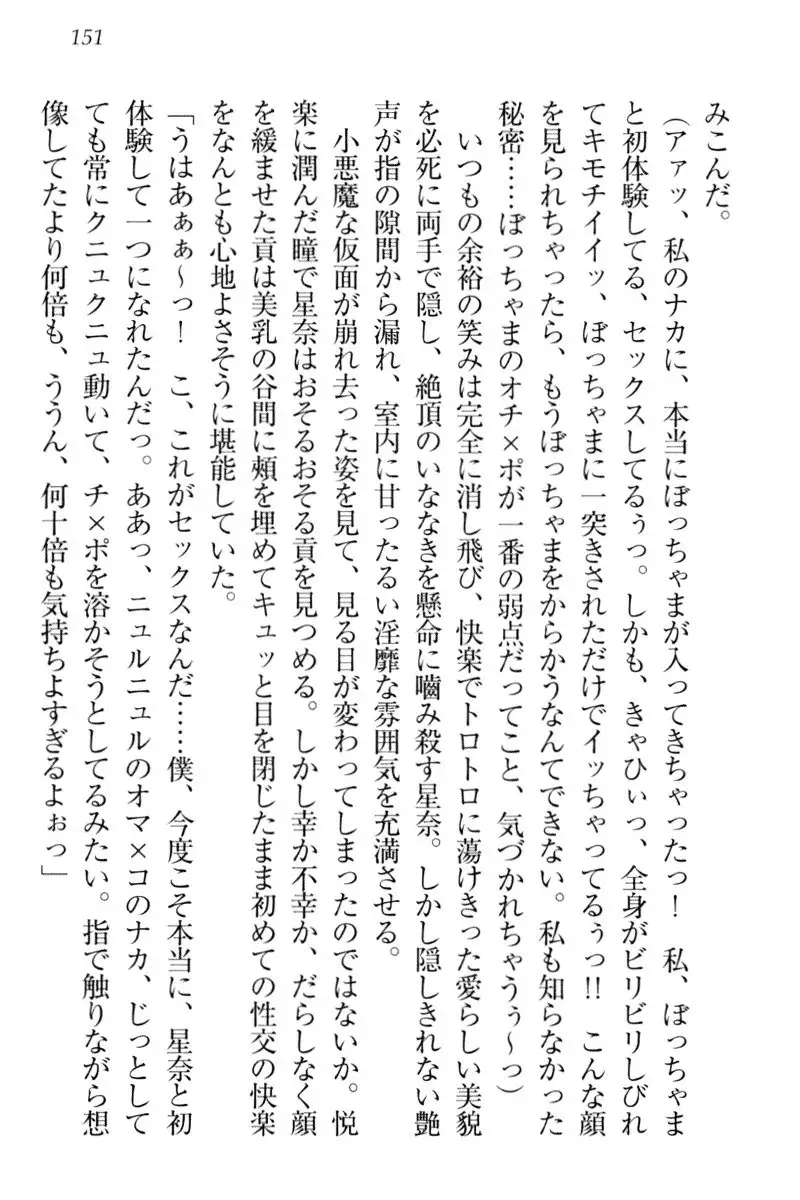 151
みこんだ。
（アァッ、私のナカに、本当にぼっちゃまが入ってきちゃったっ！　私、ぼっちゃま
と初体験してる、セックスしてるぅっ。しかも、きゃひぃっ、全身がビリビリしびれ
てキモチイイッ、ぼっちゃまに一突きされただけでイッちゃってるぅっ!!　こんな顔
を見られちゃったら、もうぼっちゃまをからかうなんてできない。私も知らなかった
秘密……ぼっちゃまのオチ×ポが一番の弱点だってこと、気づかれちゃうぅ～っ）
　いつもの余裕の笑みは完全に消し飛び、快楽でトロトロに蕩けきった愛らしい美貌
を必死に両手で隠し、絶頂のいななきを懸命に嚙み殺す星奈。しかし隠しきれない艶
声が指の隙間から漏れ、室内に甘ったるい淫靡な雰囲気を充満させる。
　小悪魔な仮面が崩れ去った姿を見て、見る目が変わってしまったのではないか。悦
楽に潤んだ瞳で星奈はおそるおそる貢を見つめる。しかし幸か不幸か、だらしなく顔
を緩ませた貢は美乳の谷間に頰を埋めてキュッと目を閉じたまま初めての性交の快楽
をなんとも心地よさそうに堪能していた。
「うはあぁぁ～っ！　こ、これがセックスなんだ……僕、今度こそ本当に、星奈と初
体験して一つになれたんだっ。ああっ、ニュルニュルのオマ×コのナカ、じっとして
ても常にクニュクニュ動いて、チ×ポを溶かそうとしてるみたい。指で触りながら想
像してたより何倍も、ううん、何十倍も気持ちよすぎるよぉっ」